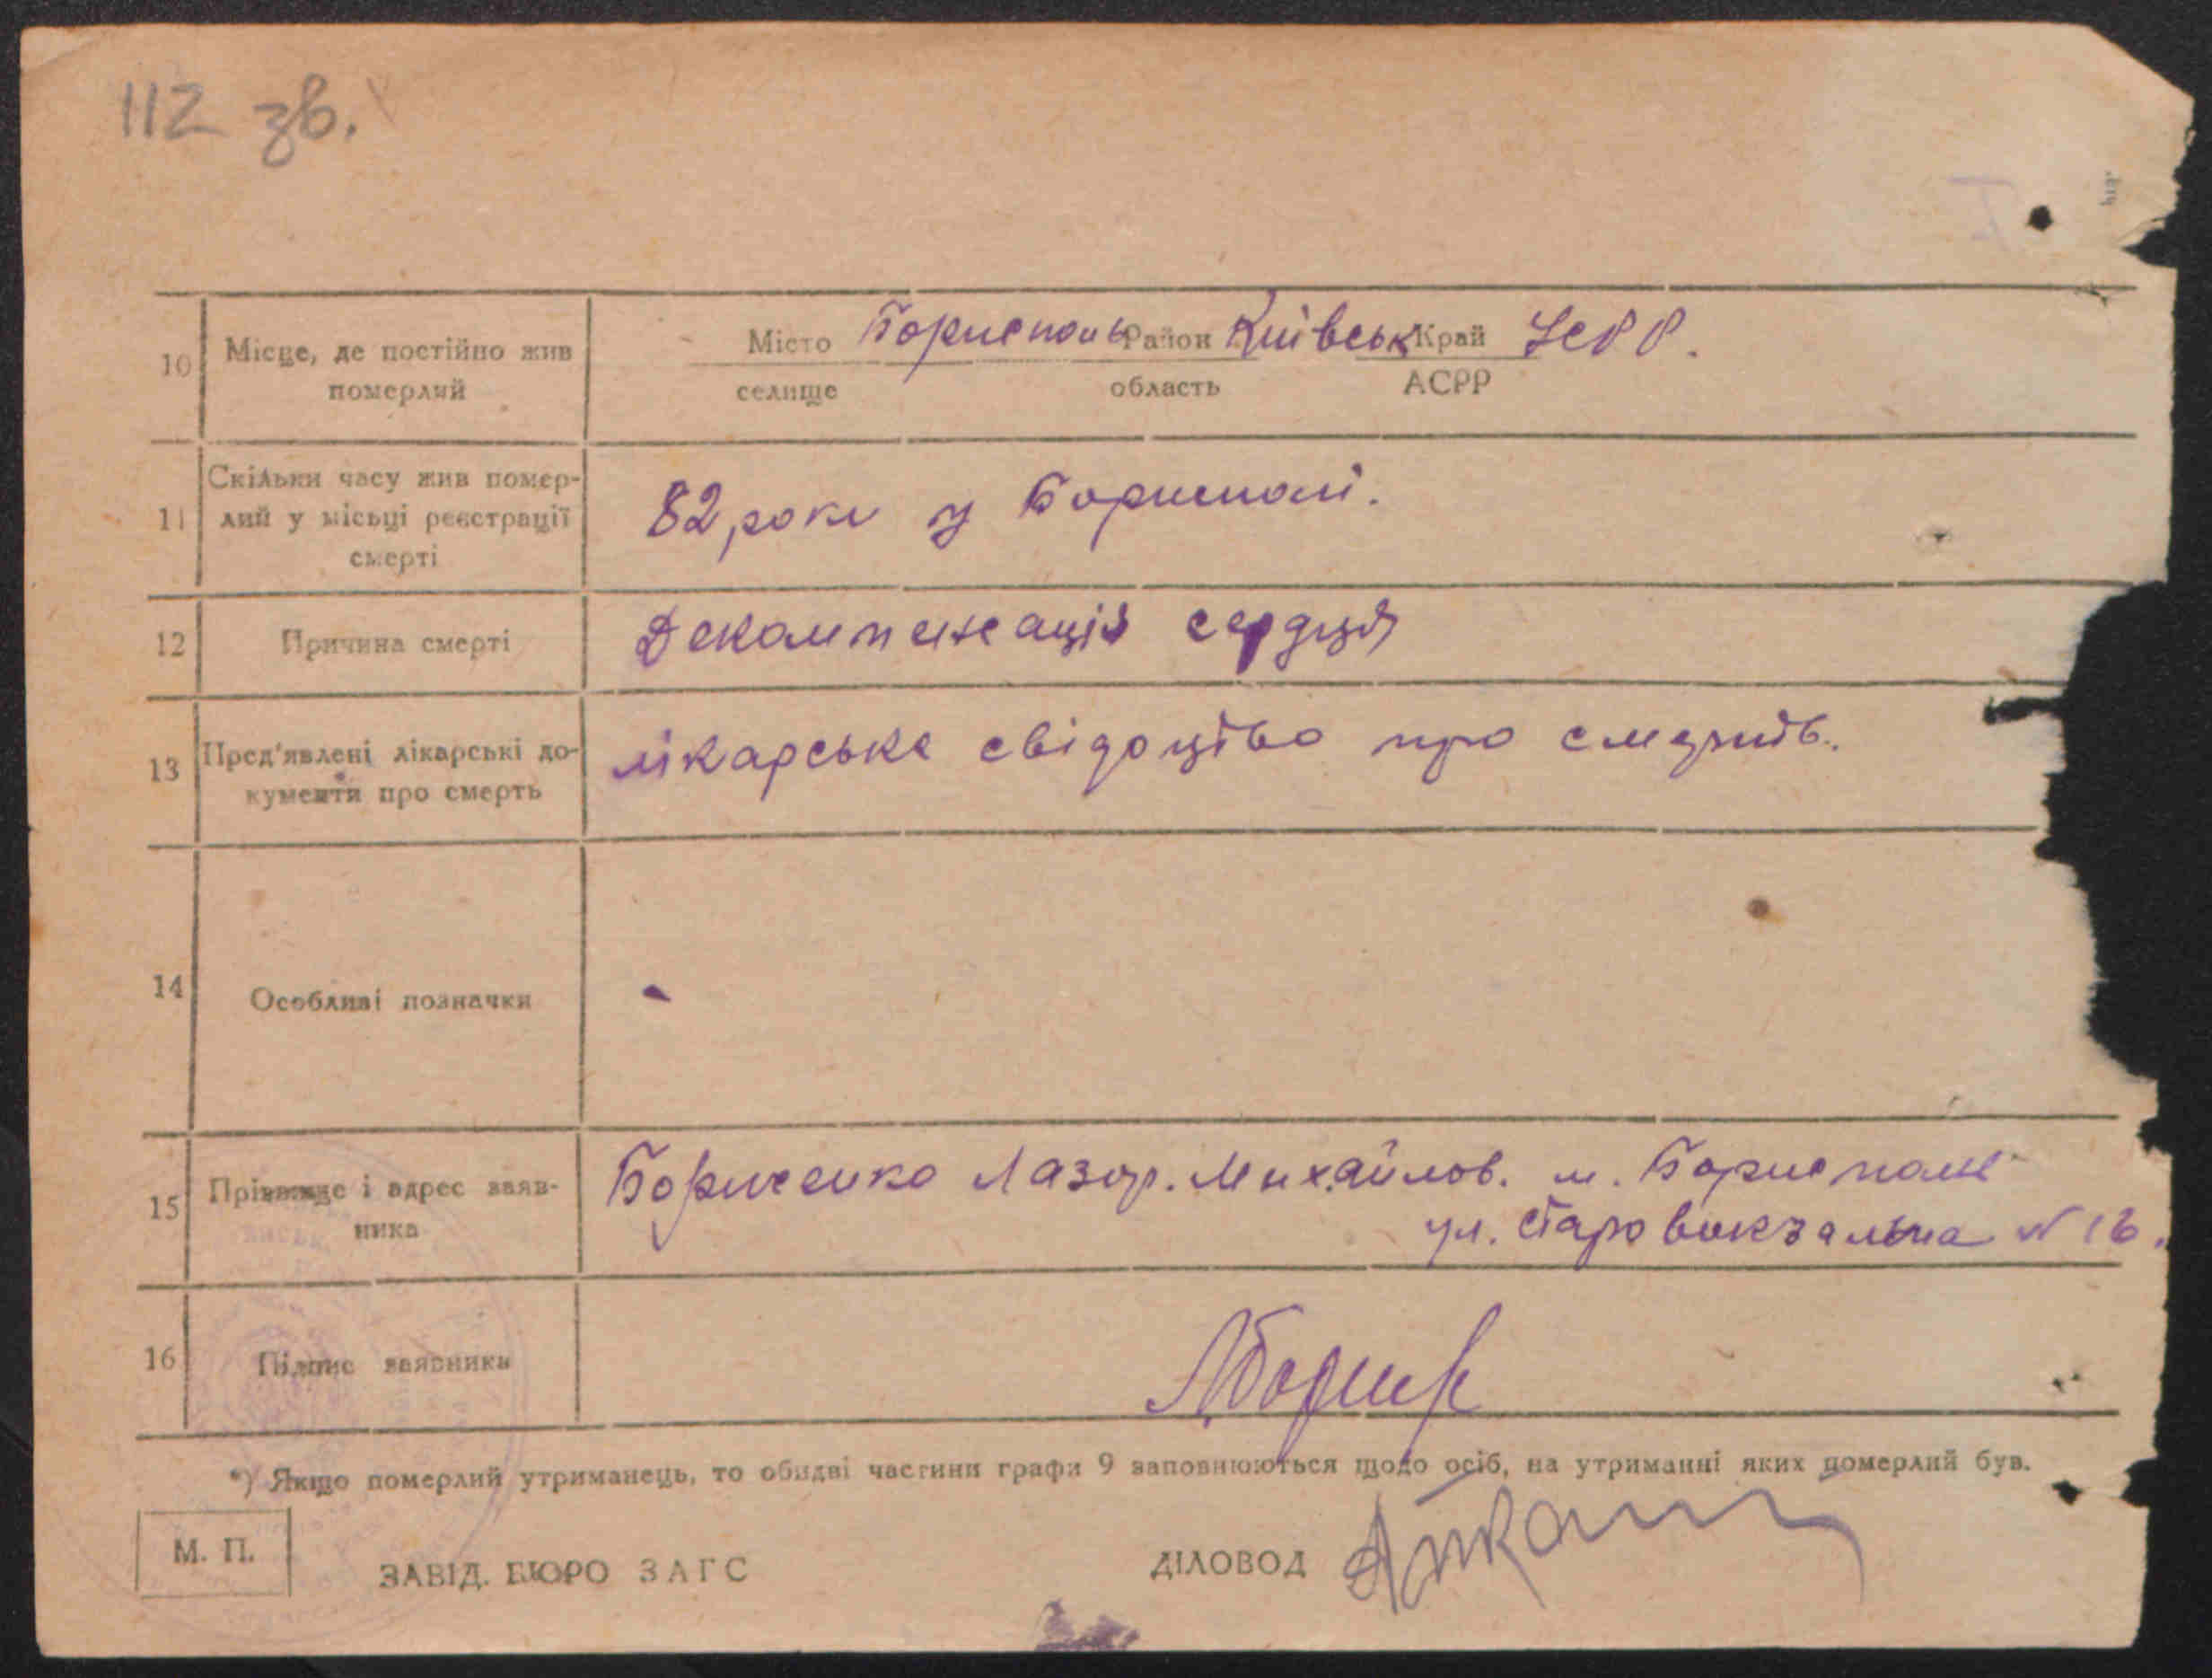 112 зв.
10 Місце, де постійно жив померлий
Місто Борисполь Район Київськ Край УСРР.
селище область АСРР
11 Скільки часу жив помер-
лий у місьці реєстрації
смерті
82 роки у Борисполі.
12 Причина смерті
Декомпенсація серця
13 Пред'явлені лікарські до-
кументи про смерть
лікарське свідоцтво про смерть.
14 Особливі позначки
-
15 Прізвище і адрес заяв-
ника
Лазор. Михайлов. м. Бориспол
ул. Старовокзальна N 16.
16 Підпис заявника
*) Якщо померлий утриманець, то обидві частини графи 9 заповнюються щодо осіб, на утриманні яких померлий був.
М. П.
ЗАВІД. БЮРО ЗАГС
ДІЛОВОД